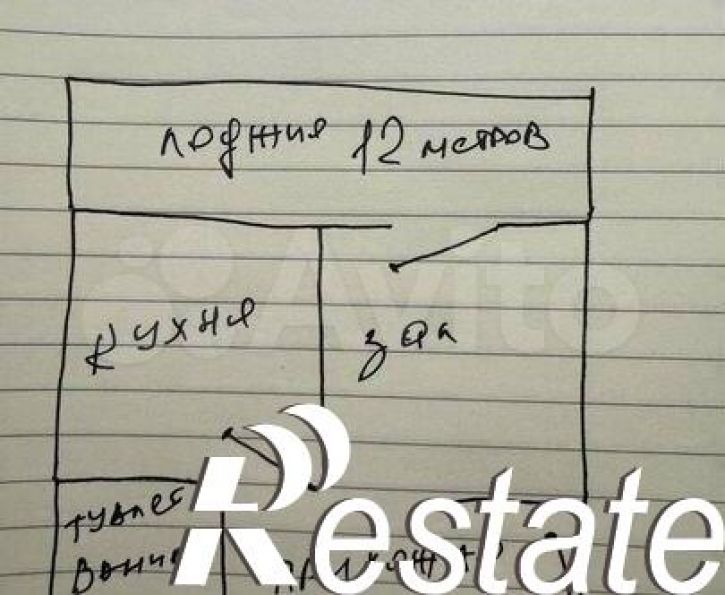 лоджия 12 метров
Avito
кухня
зал
туалет
Restate